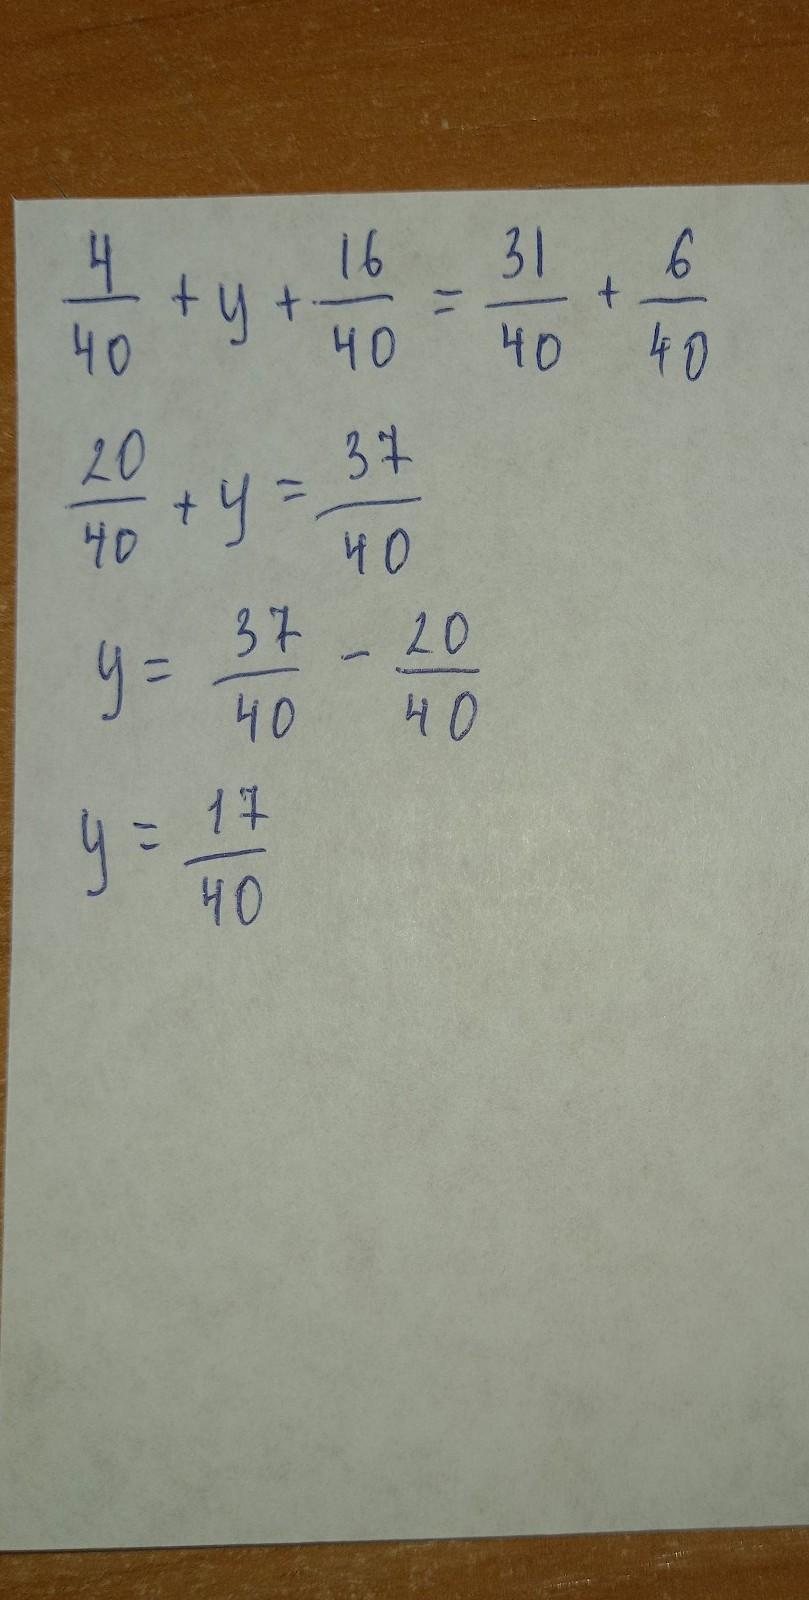 4/40 + y + 16/40 = 31/40 + 6/40
20/40 + y = 37/40
y = 37/40 - 20/40
y = 17/40